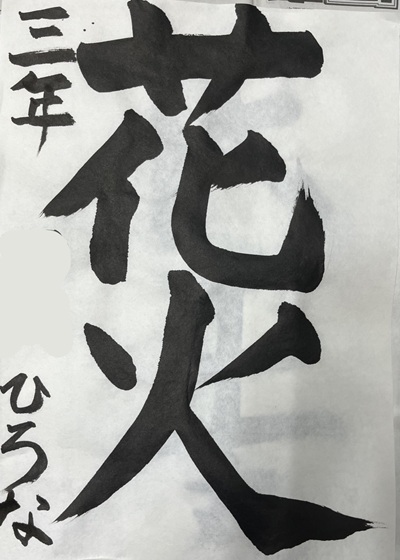 花火
三年
ひろな